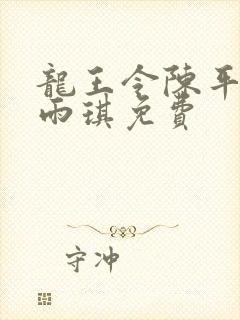 龍王令陳平
雨琪免費
守冲